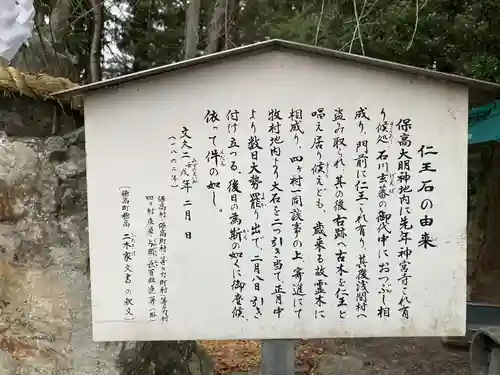 仁王石の由来
保高大明神地内に先年神宮寺これ有
り候処 石川玄蕃の御代中に おつぶし相
成り、門前に仁王これ有り、其後浅間村へ
盗み取られ、其の後右跡へ古木を仁王と
唱え居り候えども、歳来る故霊木に
相成り、四ヶ村一同談事の上、寄進にて
牧村地内より大石を二つ引き当て正月中
より数日大勢罷り出で、二月八日引き
付け立つる。後日の為斯の如くに御座候、
依って件の如し。
文久二戌年 二月 日
(一八六二年)
保高村、保高町村、等々力町村、等々力村
穂高町穂高 (二木家文書)の釈文